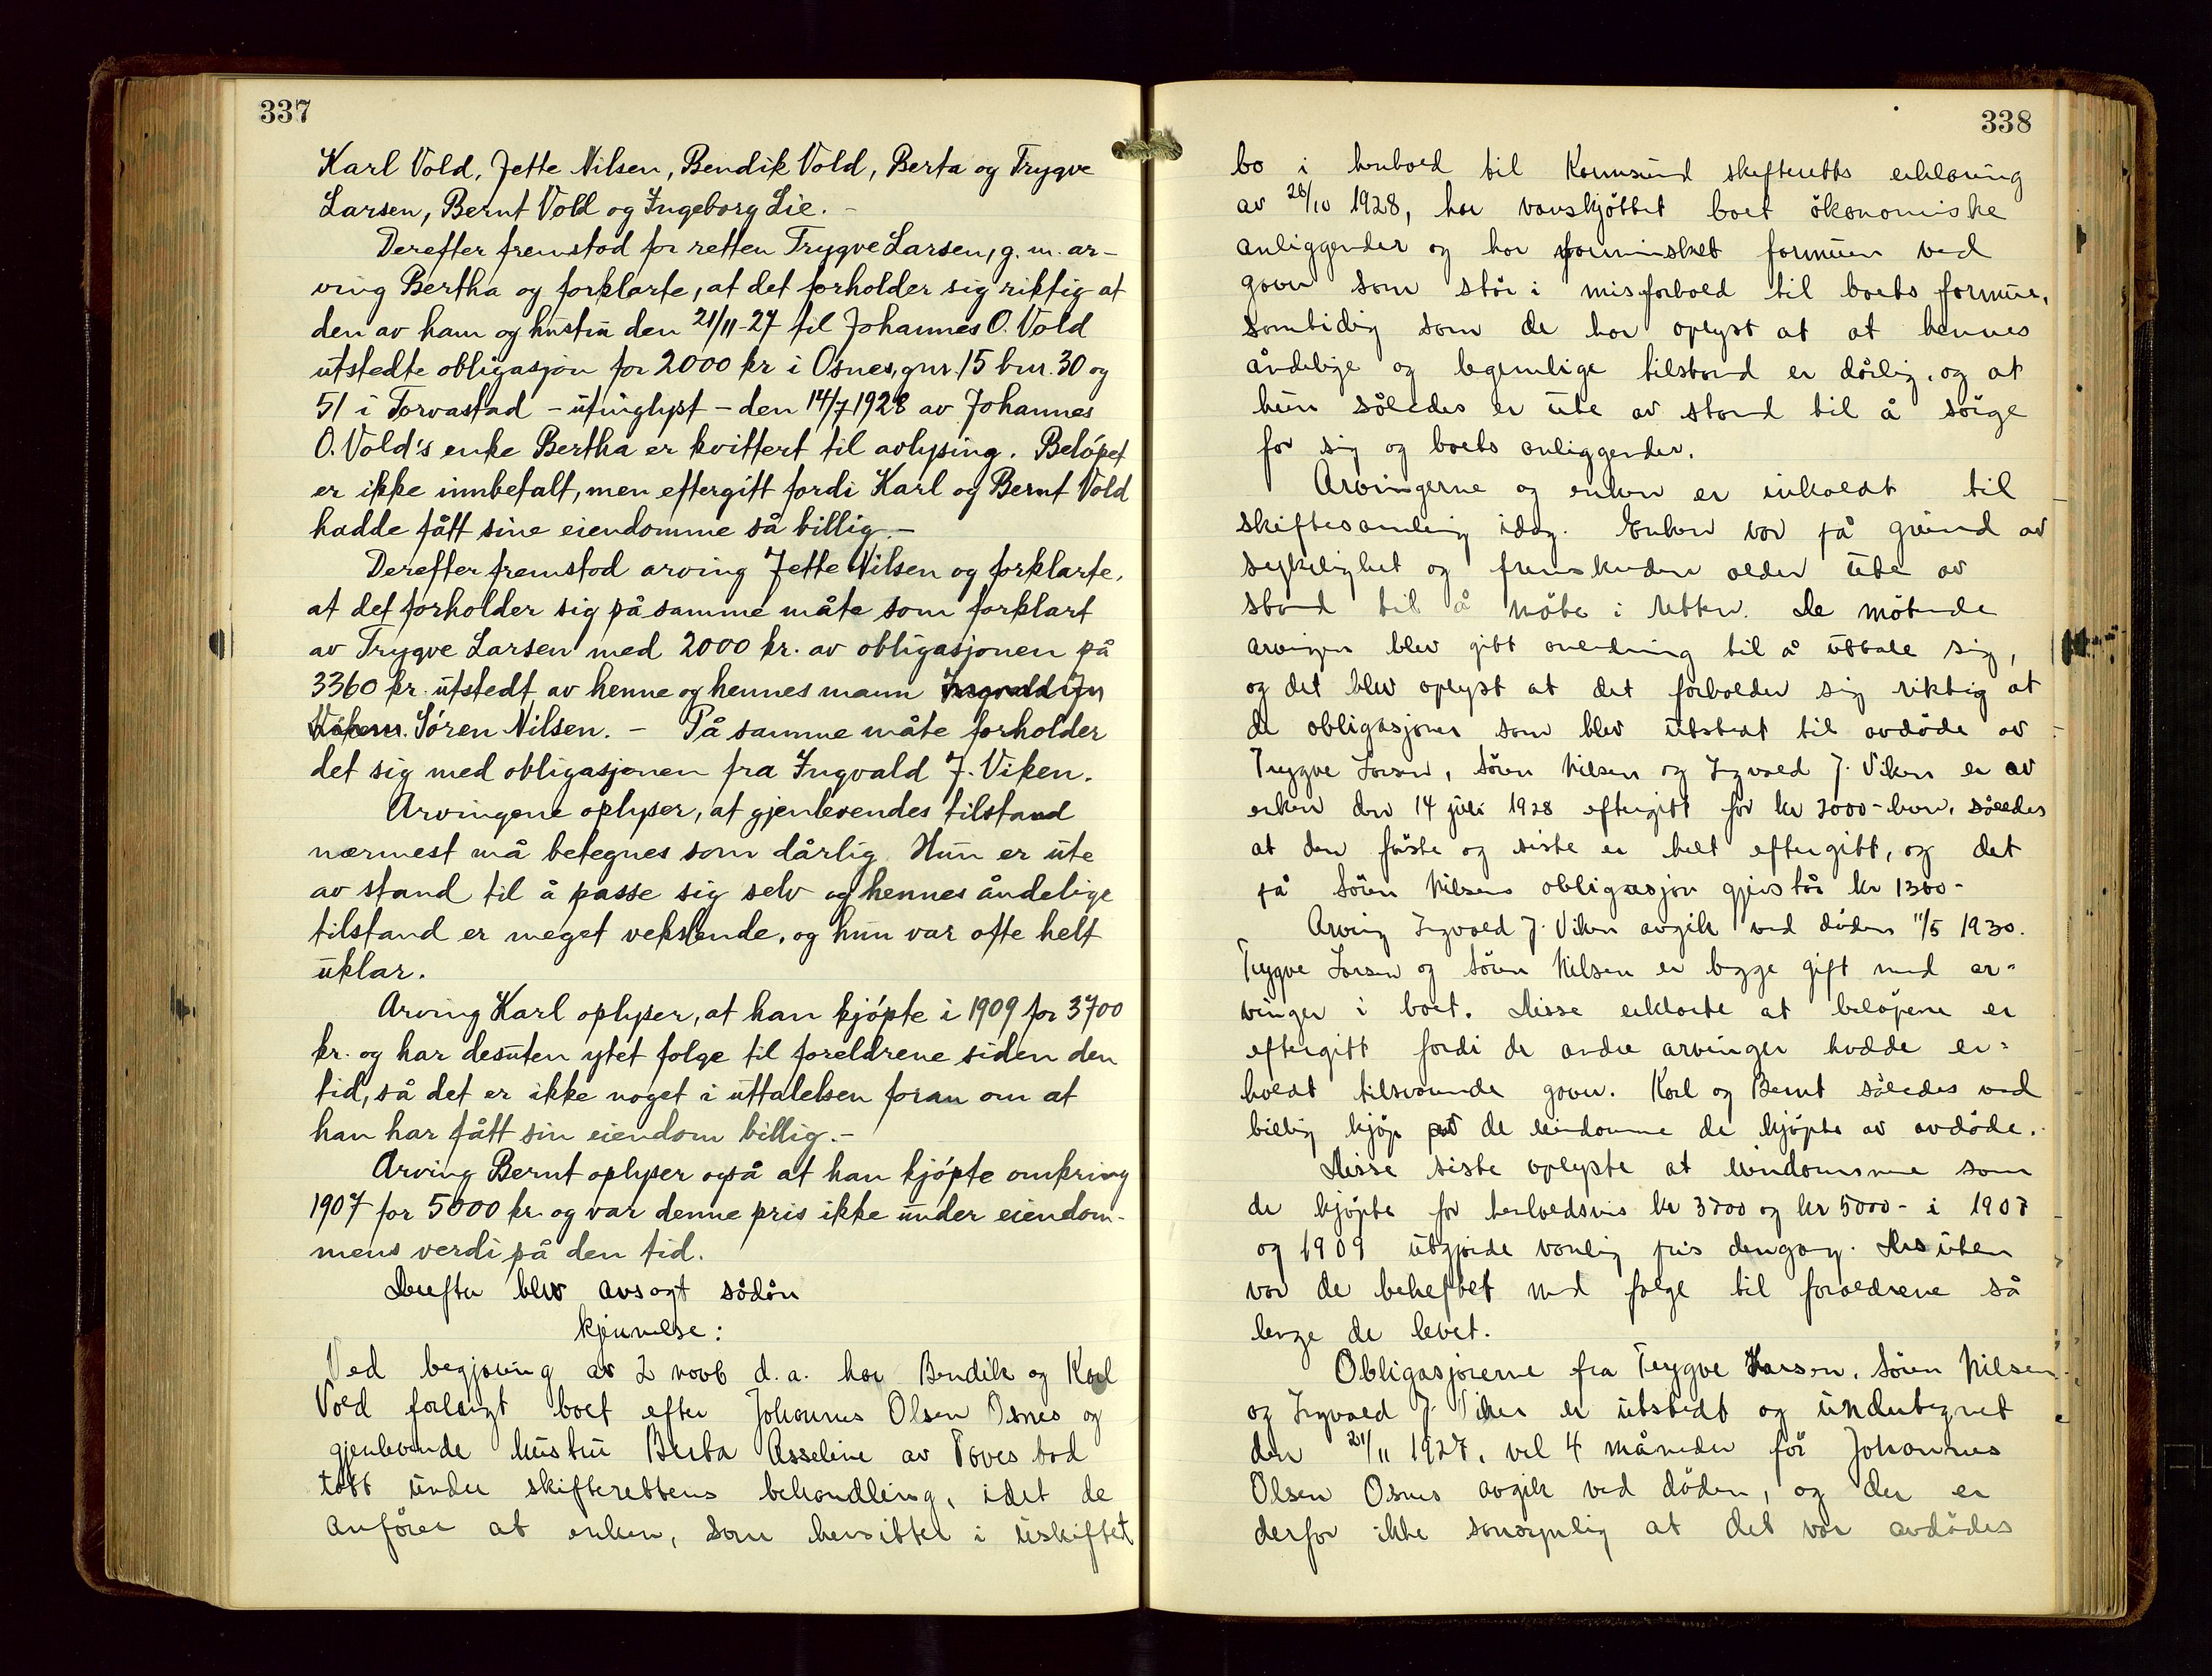 337
Karl Vold, Jette Nilsen, Bendik Vold, Berta og Trygve
Larsen, Bernt Vold og Ingeborg Lie. -
Derefter fremstod for retten Trygve Larsen, g. m. ar-
ving Bertha og forklarte, at det forholder sig riktig at
den av ham og hustru den 21/11-27 til Johannes O. Vold
utstedte obligasjon for 2000 kr i Osnes, gnr. 15 bnr. 30 og
51 i Torvastad - utinglyst - den 14/7 1928 av Johannes
O. Vold's enke Bertha er kvittert til avlysing. Beløpet
er ikke innbetalt, men eftergitt fordi Karl og Bernt Vold
hadde fått sine eiendomme så billig. -
Derefter fremstod arving Jette Nilsen og forklarte,
at det forholder sig på samme måte som forklart
av Trygve Larsen med 2000 kr. av obligasjonen på
3360 kr. utstedt av henne og hennes mann
Søren Nilsen. - På samme måte forholder
det sig med obligasjonen fra Ingvald J. Viken.
Arvingene oplyser, at gjenlevendes tilstand
nærmest må betegnes som dårlig. Hun er ute
av stand til å passe sig selv og hennes åndelige
tilstand er meget vekslende, og hun var ofte helt
uklar.
Arving Karl oplyser, at han kjøpte i 1909 for 3700
kr. og har desuten ytet følge til foreldrene siden den
tid, så det er ikke noget i uttalelsen foran om at
han har fått sin eiendom billig. -
Arving Bernt oplyser også at han kjøpte omkring
1907 for 5000 kr. og var denne pris ikke under eiendom-
mens verdi på den tid.
Derefter blev avsagt sådån
kjennelse:
Ved begjæring av 2 novb d.a. har Bendik og Karl
Vold forlangt boet efter Johannes Olsen Osnes og
gjenlevende hustru Berta Asseline av Torvestad
tatt under skifterettens behandling, idet de
anfører at enken, som hensitter i uskiftet
338
bo i henhold til Karmsund skifteretts erklæring
av 26/10 1928, har vanskjøttet boet økonomiske
anliggender og har forminsket formuen ved
gaver som står i misforhold til boets formue,
samtidig som de har oplyst at at hennes
åndelige og legemlige tilstand er dårlig, og at
hun således er ute av stand til å sørge
for sig og boets anliggender.
Arvingerne og enken er inkaldt til
skiftesamling idag. Enken var på grund av
sykelighet og fremskreden alder ute av
stand til å møte i retten. De møtende
arvinger blev gitt anledning til å uttale sig,
og det blev oplyst at det forholder sig riktig at
de obligasjoner som blev utstedt til avdøde av
Trygve Larsen, Søren Nilsen og Ingvald J. Viken er av
enken den 14 juli 1928 eftergitt for kr 2000- hver, således
at den første og siste er helt eftergitt, og det
på Søren Nilsens obligasjon gjenstår kr 1360-
Arving Ingvald J. Viken avgik ved døden 11/5 1930.
Trygve Larsen og Søren Nilsen er begge gift med ar-
vinger i boet. Disse erklærte at beløpene er
eftergitt fordi de andre arvinger hadde er-
holdt tilsvarende gaver. Karl og Bernt således ved
billig kjøp av de eiendomme de kjøpte av avdøde.
Disse siste oplyste at eiendommene som
de kjøpte for henholdsvis kr 3700 og kr 5000- i 1907
og 1909 utgjorde vanlig pris dengang. Desuten
var de beheftet med følge til forældrene så
lenge de levet.
Obligasjonerne fra Trygve Larsen, Søren Nilsen
og Ingvald J. Viken er utstedt og undertegnet
den 21/11 1927, vel 4 måneder før Johannes
Olsen Osnes avgik ved døden, og der er
derfor ikke sansynlig at det var avdødes